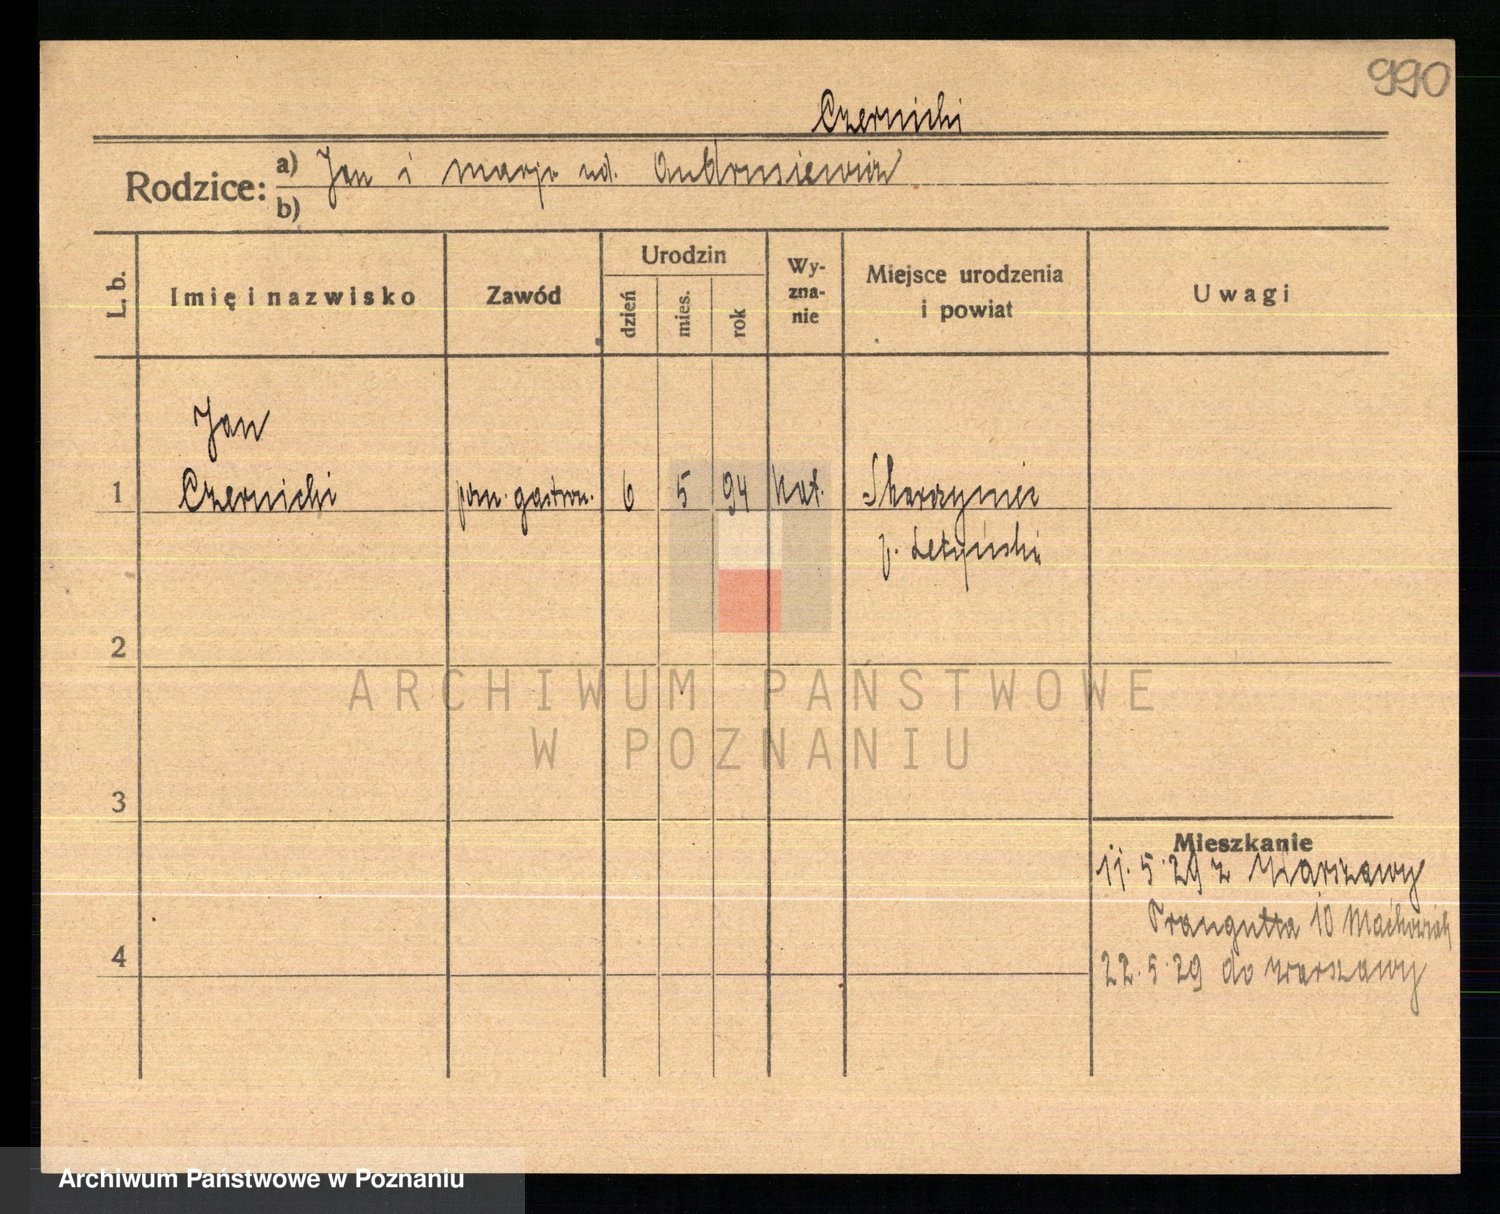 990
Czernicki
Rodzice: a) Jan i Marja ud. Andrusiewicz
b)
L. b.
Imię i nazwisko
Zawód
Urodzin
dzień
mies.
rok
Wy-
zna-
nie
Miejsce urodzenia
i powiat
Uwagi
Jan
1 Czernicki gastron. 6 5 94 kat. Skarzyniec
p. Letyński
2
3
4
Mieszkanie
11. 5. 29 z Warszawy
Traugutta 10 Maćkowiak
22. 5. 29 do Warszawy
ARCHIWUM PAŃSTWOWE
W POZNANIU
Archiwum Państwowe w Poznaniu